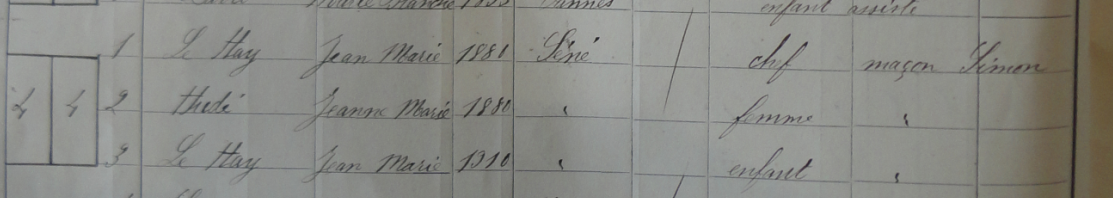 enfant assisté
1 Le Hay Jean Marie 1881 Séné chef maçon Simon
4 4 2 Thebé Jeanne Marie 1880 " femme "
3 Le Hay Jean Marie 1910 " enfant "